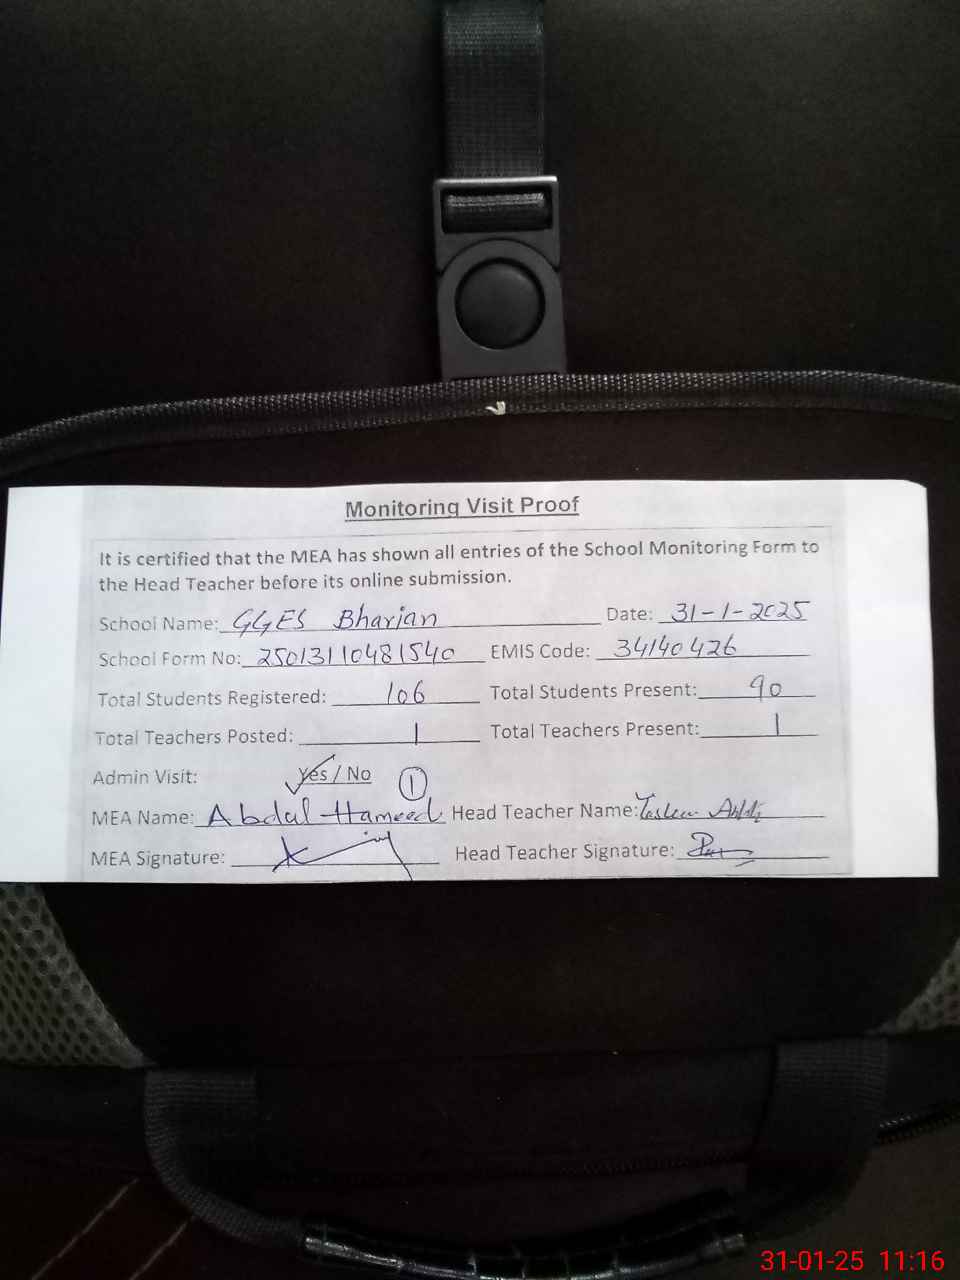 Monitoring Visit Proof
It is certified that the MEA has shown all entries of the School Monitoring Form to
the Head Teacher before its online submission.
School Name: GGES Bharian Date: 31-1-2025
School Form No: 25013110481540 EMIS Code: 34140426
Total Students Registered: 106 Total Students Present: 90
Total Teachers Posted: 1 Total Teachers Present: 1
Admin Visit: Yes / No 1
MEA Name: Abdul Hameed Head Teacher Name:
MEA Signature: Head Teacher Signature:
31-01-25 11:16